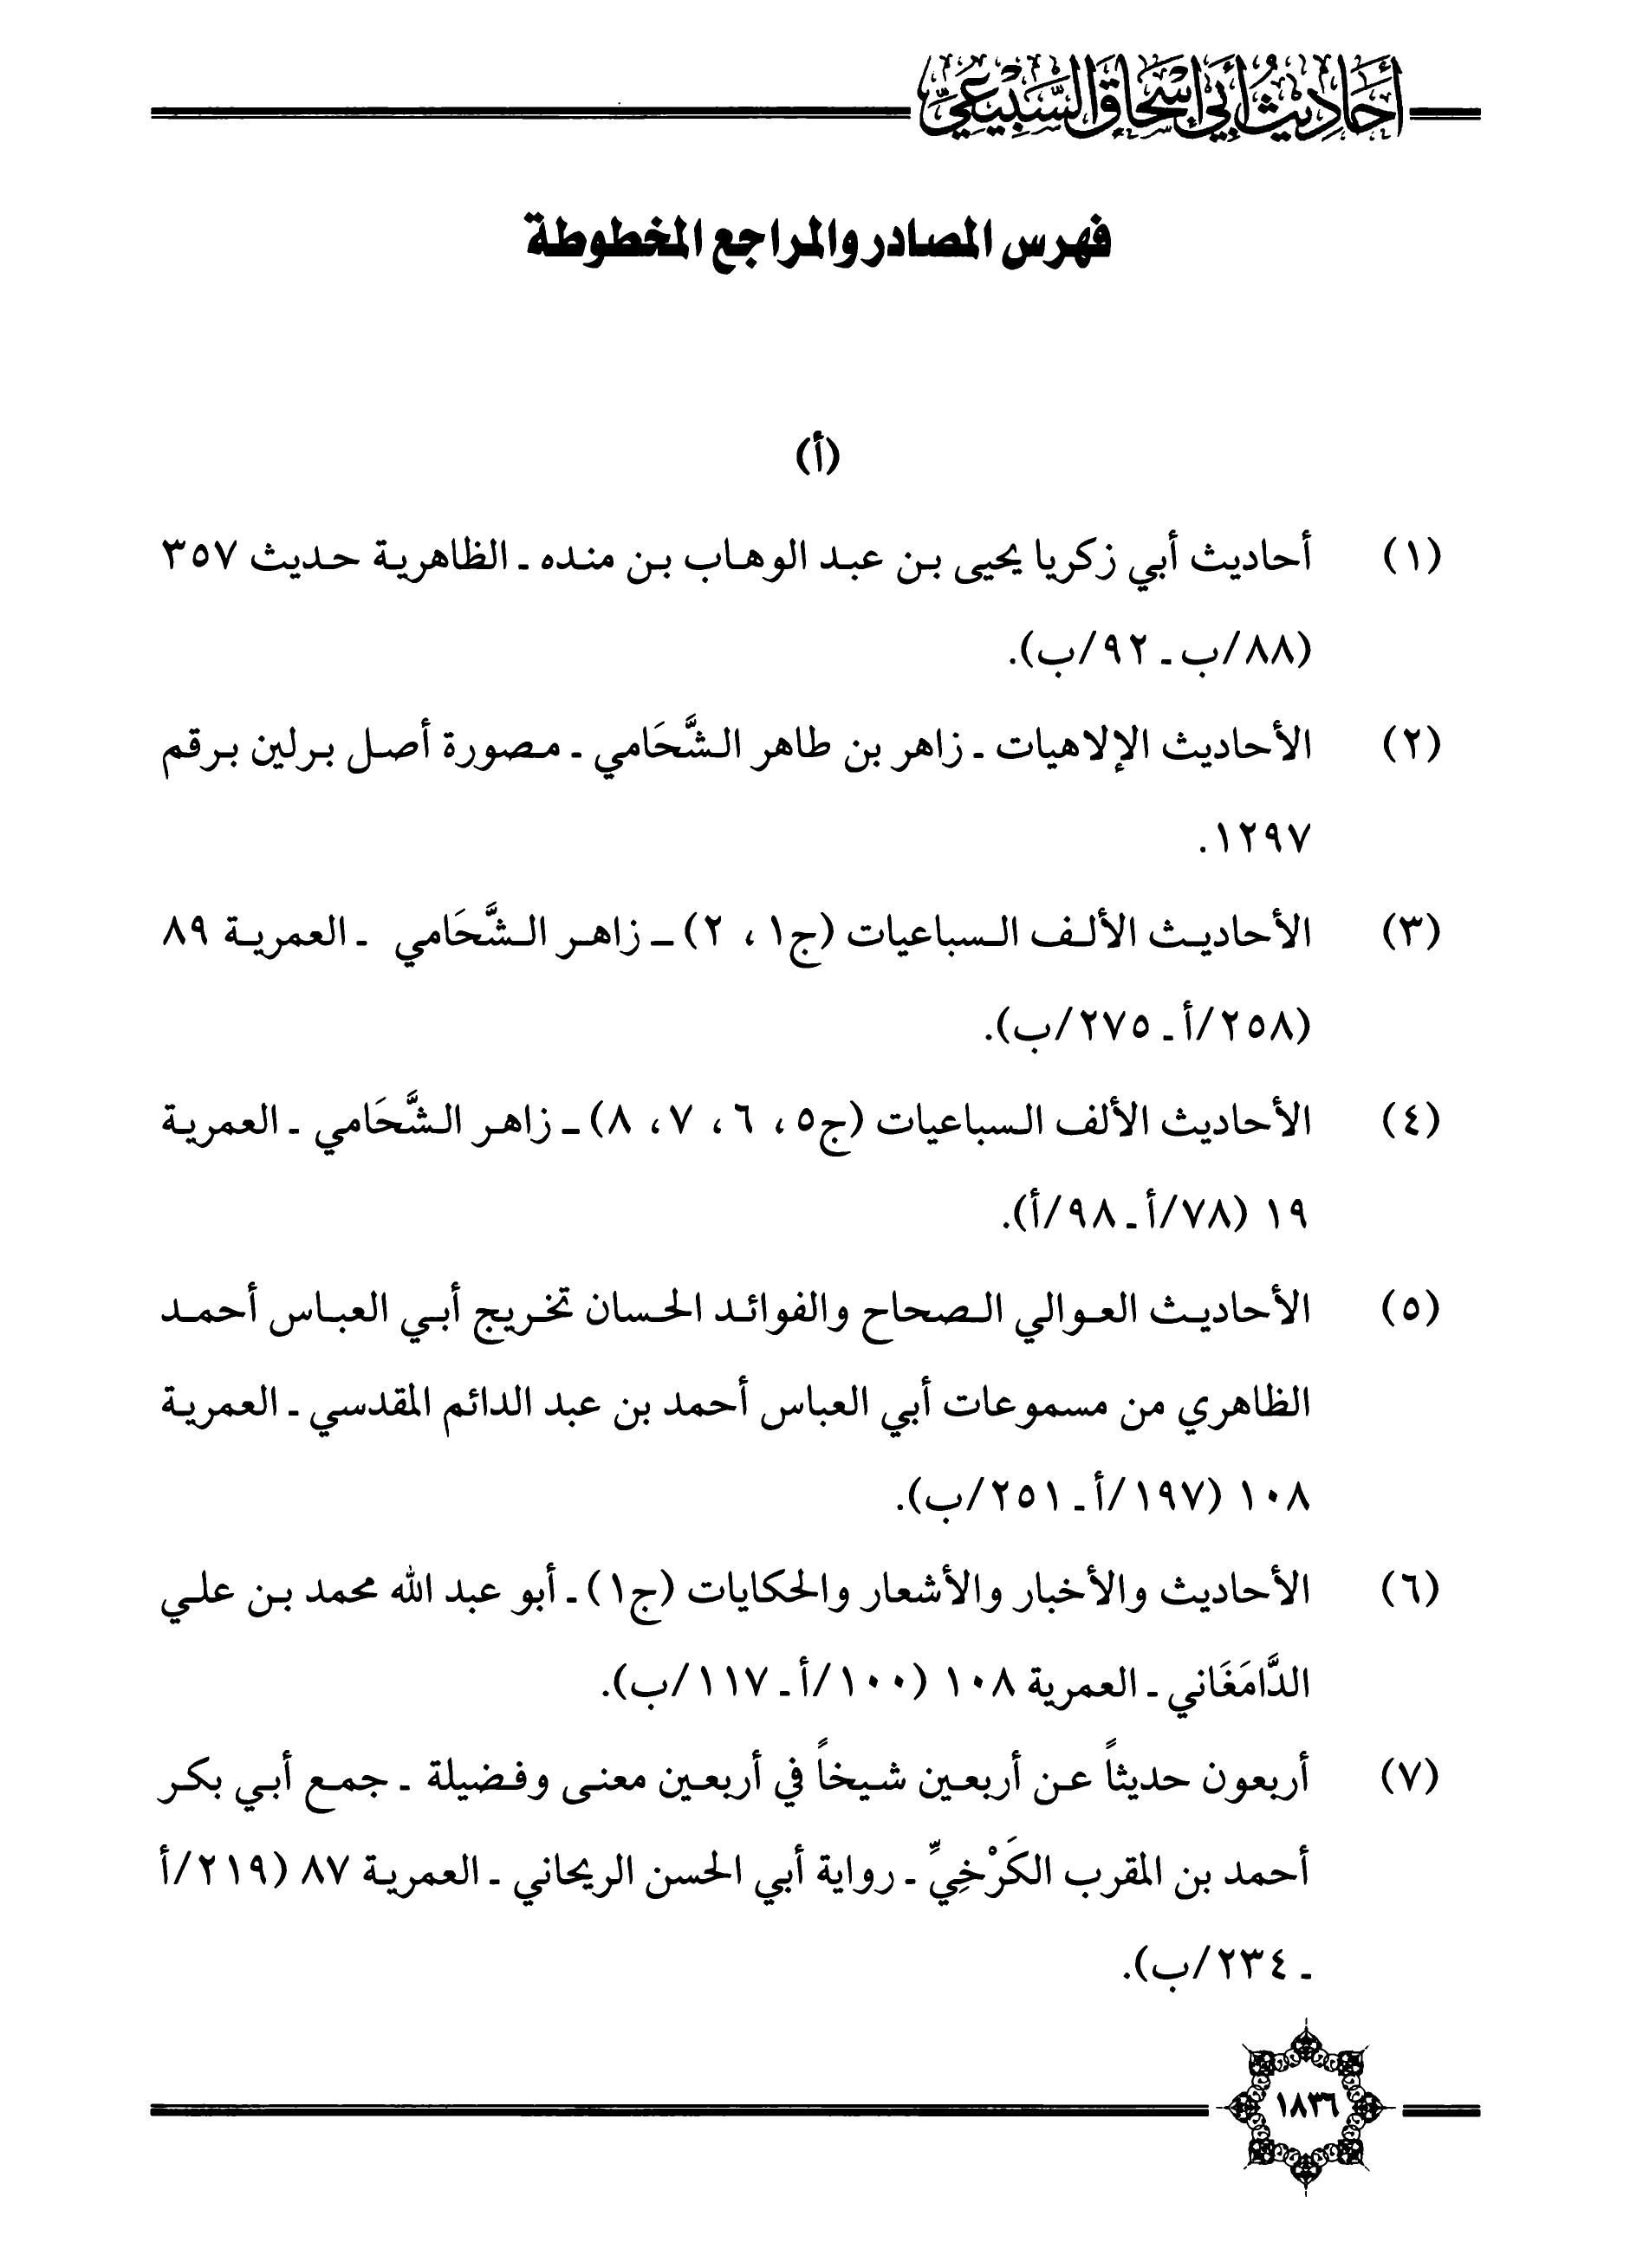 أَحَادِيثُ أَبِي إِسْحَاقَ السَّبِيْعِيِّ
فهرس المصادر والمراجع المخطوطة
(أ)
(١) أحاديث أبي زكريا يحيى بن عبد الوهاب بن منده ـ الظاهرية حديث ٣٥٧
(٨٨/ب ـ ٩٢/ب).
(٢) الأحاديث الإلاهيات ـ زاهر بن طاهر الشَّحَامي ـ مصورة أصل برلين برقم
١٢٩٧.
(٣) الأحاديث الألف السباعيات (ج١، ٢) ـ زاهر الشَّحَامي ـ العمرية ٨٩
(٢٥٨/أ ـ ٢٧٥/ب).
(٤) الأحاديث الألف السباعيات (ج٥، ٦، ٧، ٨) ـ زاهر الشَّحَامي ـ العمرية
١٩ (٧٨/أ ـ ٩٨/أ).
(٥) الأحاديث العوالي الصحاح والفوائد الحسان تخريج أبي العباس أحمد
الظاهري من مسموعات أبي العباس أحمد بن عبد الدائم المقدسي ـ العمرية
١٠٨ (١٩٧/أ ـ ٢٥١/ب).
(٦) الأحاديث والأخبار والأشعار والحكايات (ج١) ـ أبو عبد الله محمد بن علي
الدَّامَغَاني ـ العمرية ١٠٨ (١٠٠/أ ـ ١١٧/ب).
(٧) أربعون حديثاً عن أربعين شيخاً في أربعين معنى وفضيلة ـ جمع أبي بكر
أحمد بن المقرب الكَرْخِيِّ ـ رواية أبي الحسن الريحاني ـ العمرية ٨٧ (٢١٩/أ
ـ ٢٣٤/ب).
١٨٣٦